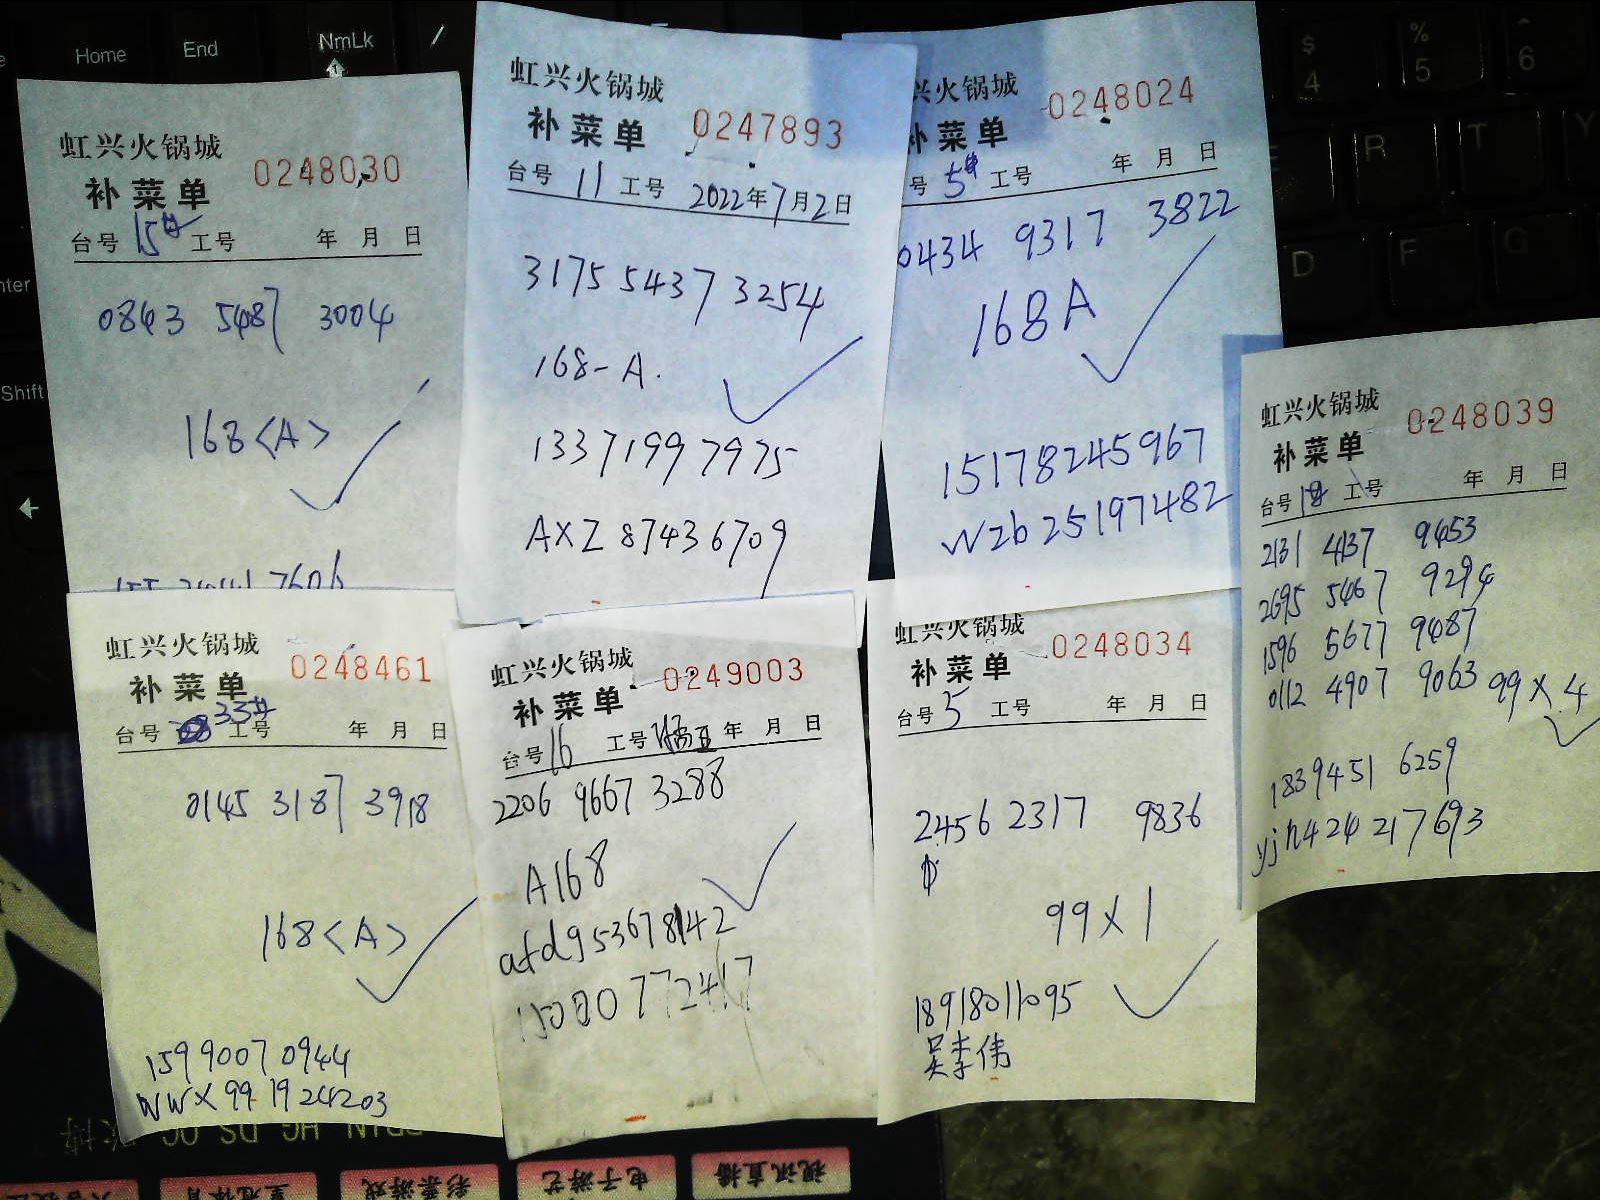 Home
End
NmLk
/
$
4
%
5
6
R
T
Y
D
F
G
Shift
虹兴火锅城
补菜单 0248030
台号 15# 工号 年 月 日
0843 5487 3004
168<A>
虹兴火锅城
补菜单 0247893
台号 11 工号 2022年7月2日
3175 5437 3254
168-A.
13371997975
AXZ 87436709
兴火锅城
补菜单 0248024
号 5# 工号 年 月 日
0434 9317 3822
168A
15178245967
Wzb25197482
虹兴火锅城
补菜单 0248039
台号 18 工号 年 月 日
2131 4137 9453
2695 5467 9294
1596 5677 9487
0112 4907 9063 99X4
1839451 6259
yjh424217693
虹兴火锅城
补菜单 0248461
台号 33# 工号 年 月 日
0145 3187 3918
168<A>
15990070944
WWX9919242203
虹兴火锅城
补菜单 0249003
台号 16 工号 年 月 日
2206 9667 3288
A168
afdg53678142
虹兴火锅城
补菜单 0248034
台号 5 工号 年 月 日
2456 2317 9836
99X1
18918011095
吴李伟
彩票游戏
电子游艺
视讯直播